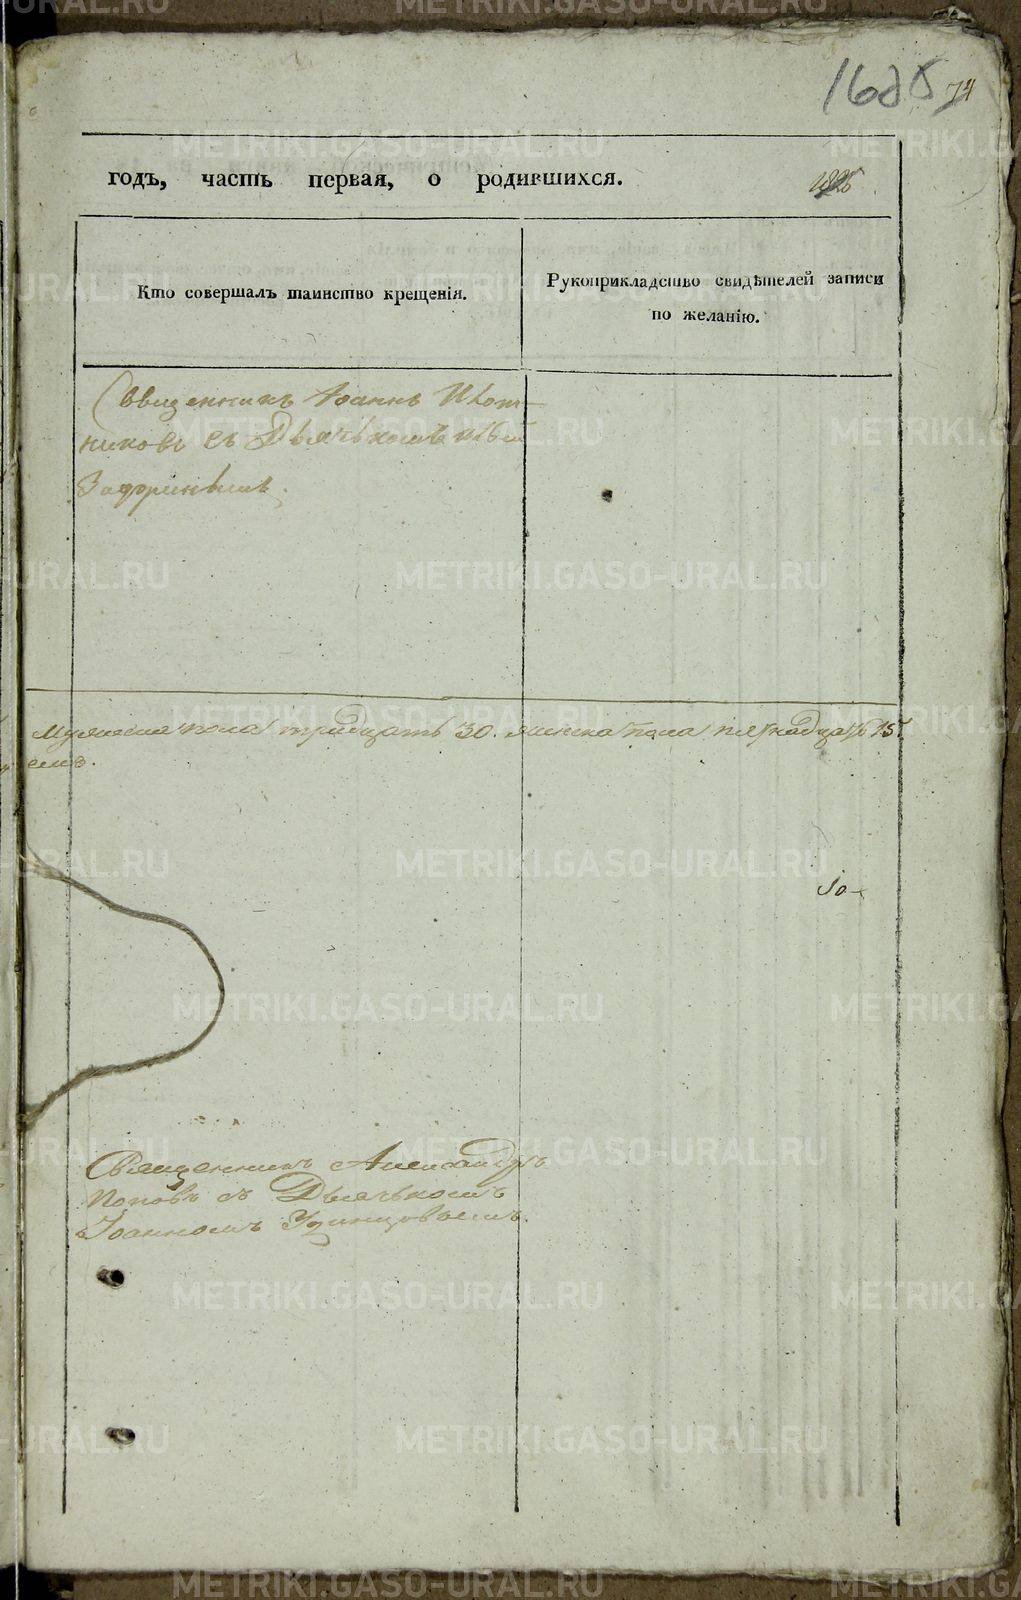 74
годъ, часть первая, о родившихся.
Кто совершалъ таинство крещенія.
Рукоприкладство свидѣтелей записи
по желанію.
Священникъ Іоаннъ
съ Дьячькомъ
Мужеска пола тридцать 30. женска пола пятнадцать 15.
Священникъ Александръ
Поповъ съ Дьячькомъ
Іоанномъ Удинцовымъ.
METRIKI.GASO-URAL.RU